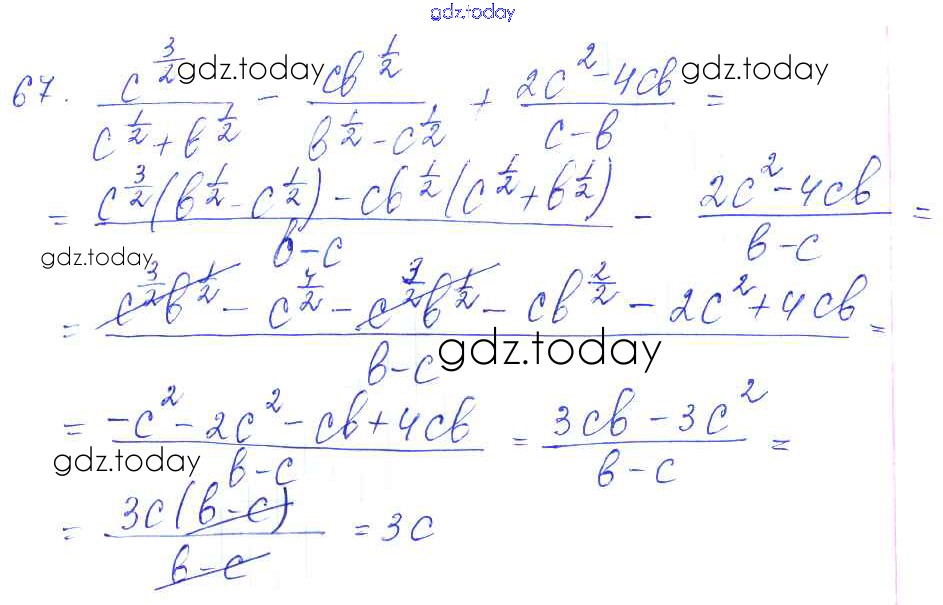 gdz.today
67. \frac{c^{\frac{3}{2}}}{c^{\frac{1}{2}}+b^{\frac{1}{2}}} - \frac{cb^{\frac{1}{2}}}{b^{\frac{1}{2}}-c^{\frac{1}{2}}} + \frac{2c^2-4cb}{c-b} =
gdz.today gdz.today
= \frac{c^{\frac{3}{2}}(b^{\frac{1}{2}}-c^{\frac{1}{2}})-cb^{\frac{1}{2}}(c^{\frac{1}{2}}+b^{\frac{1}{2}})}{b-c} - \frac{2c^2-4cb}{b-c} =
gdz.today
= \frac{c^{\frac{3}{2}}b^{\frac{1}{2}}-c^{\frac{4}{2}}-c^{\frac{3}{2}}b^{\frac{1}{2}}-cb^{\frac{2}{2}}-2c^2+4cb}{b-c} =
gdz.today
= \frac{-c^2-2c^2-cb+4cb}{b-c} = \frac{3cb-3c^2}{b-c} =
gdz.today
= \frac{3c(b-c)}{b-c} = 3c